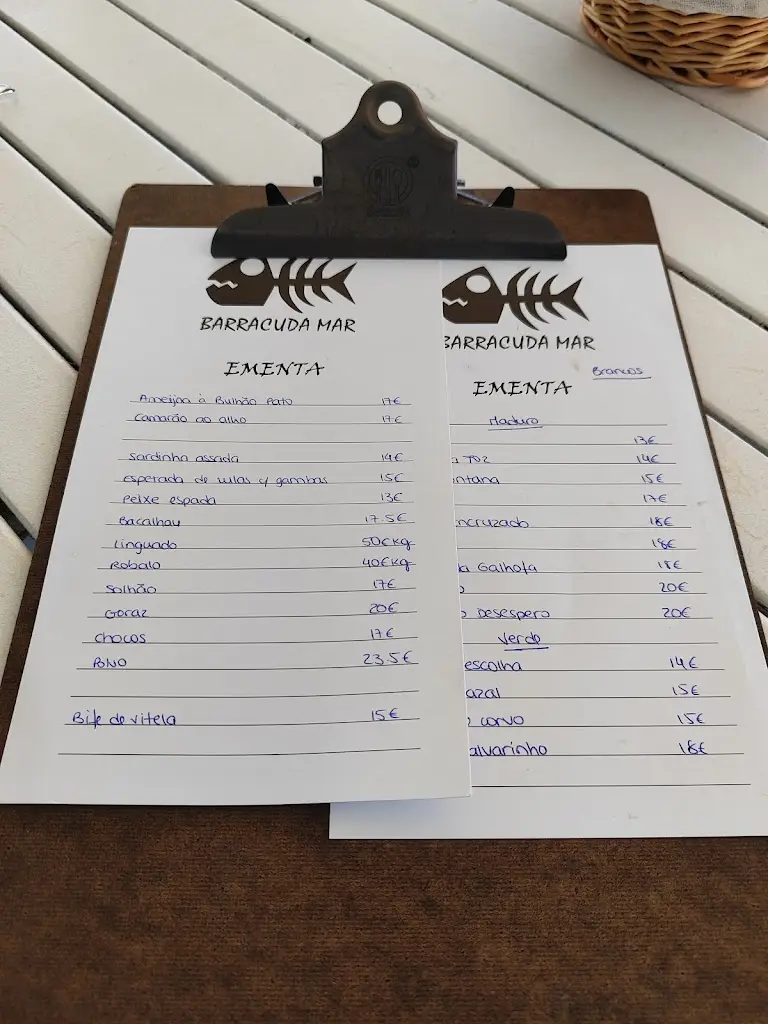 BARRACUDA MAR
EMENTA
Ameijoa à Bulhão Pato 17€
Camarão ao alho 17€
Sardinha assada 14€
espetada de lulas c/ gambas 15€
Peixe espada 13€
Bacalhau 17.5€
Linguado 50€kg
Robalo 40€kg
Solhão 17€
Goraz 20€
Chocos 17€
23.5€
Bife de vitela 15€
BARRACUDA MAR
Brancos
EMENTA
Maduro
13€
14€
ntana 15€
17€
ncruzado 18€
18€
a Galhofa 18€
20€
o Desespero 20€
Verde
escolha 14€
azal 15€
o corvo 15€
alvarinho 18€